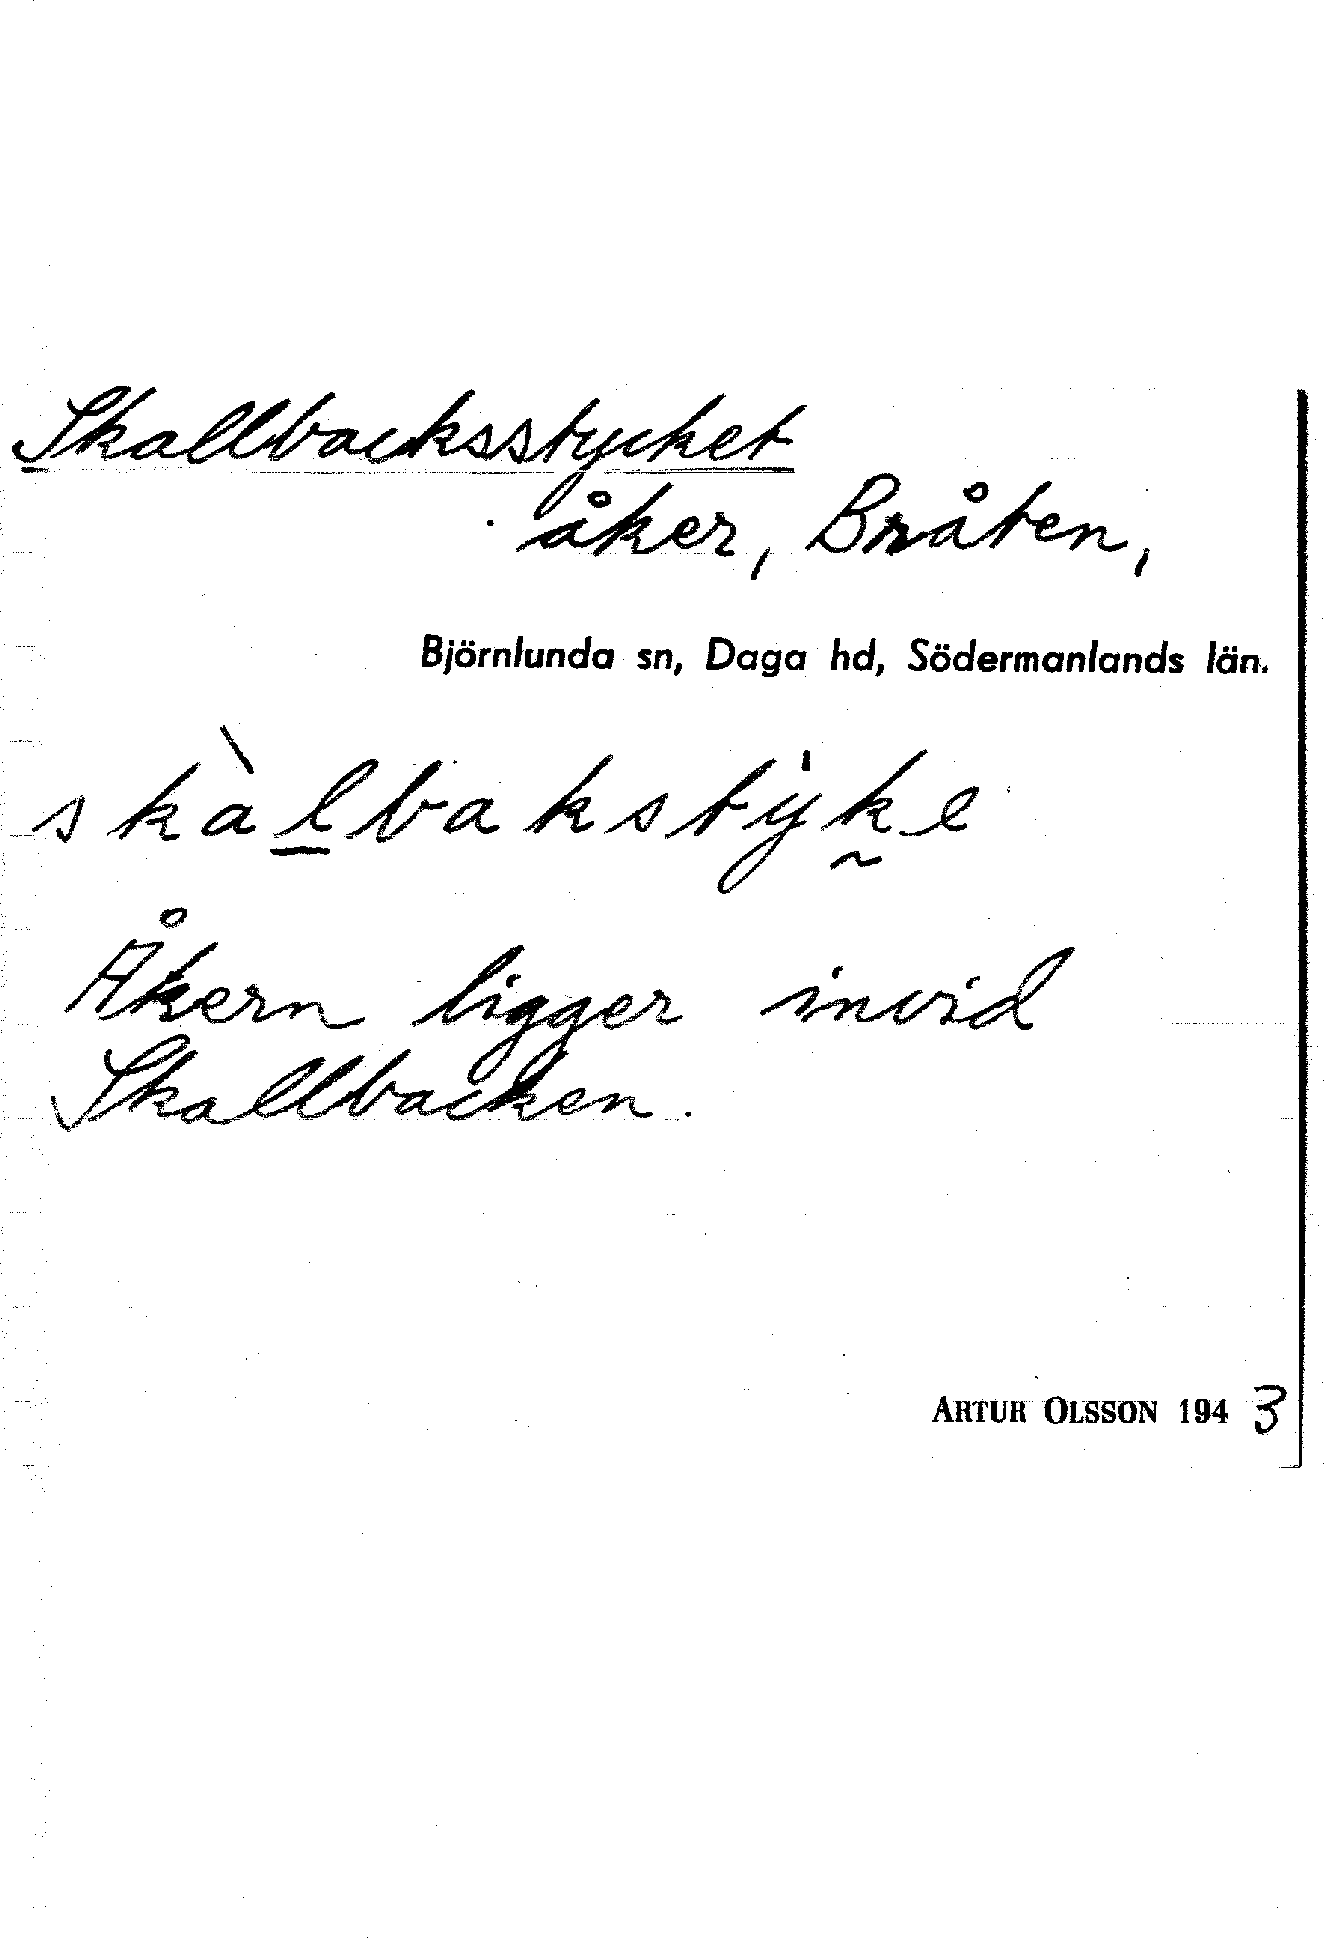 Skallbacksstycket
åker, Bråten,
Björnlunda sn, Daga hd, Södermanlands län.
skàlbakstyke
Åkern ligger invid
Skallbacken.
ARTUR OLSSON 1943